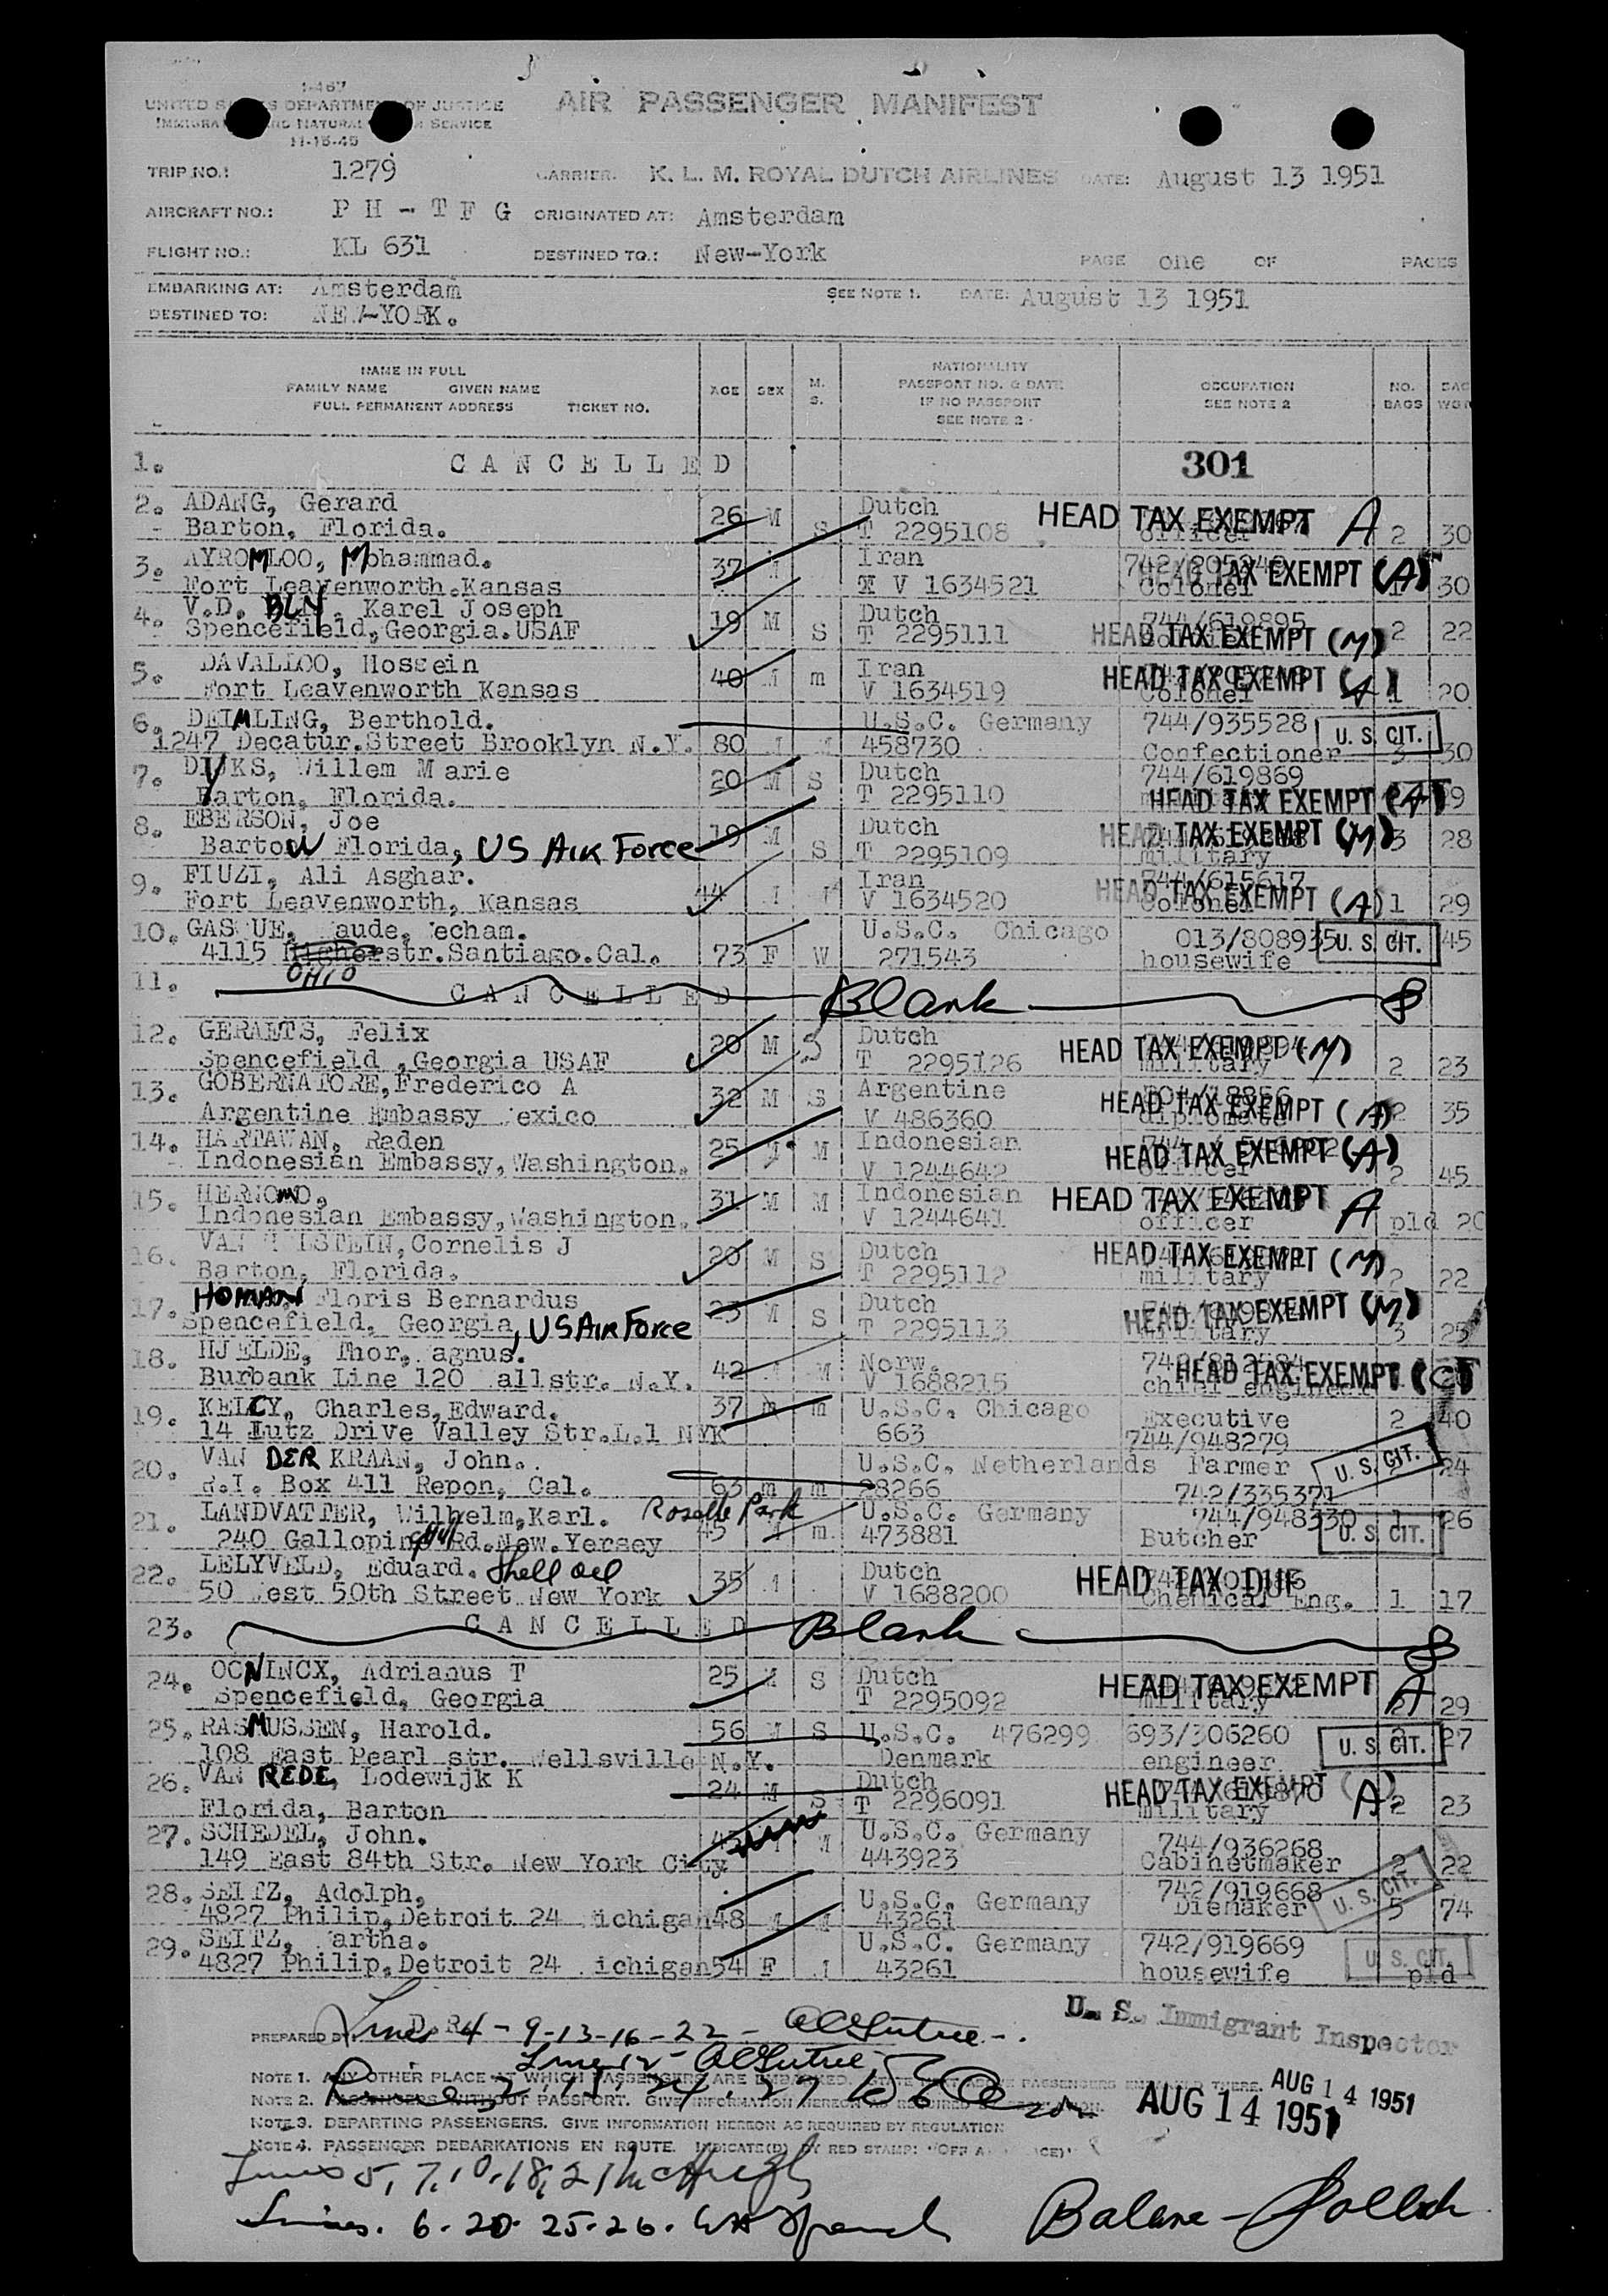 I-467
UNITED STATES DEPARTMENT OF JUSTICE
IMMIGRATION AND NATURALIZATION SERVICE
11-15-45
AIR PASSENGER MANIFEST
TRIP NO.: 1279 CARRIER. K. L. M. ROYAL DUTCH AIRLINES DATE: August 13 1951
AIRCRAFT NO.: P H - T F G ORIGINATED AT: Amsterdam
FLIGHT NO.: KL 631 DESTINED TO.: New-York PAGE one OF PAGES
EMBARKING AT: Amsterdam SEE NOTE 1. DATE: August 13 1951
DESTINED TO: NEW-YORK.
NAME IN FULL
FAMILY NAME GIVEN NAME
FULL PERMANENT ADDRESS TICKET NO.
AGE SEX M. S.
NATIONALITY
PASSPORT NO. & DATE
IF NO PASSPORT
SEE NOTE 2
OCCUPATION
SEE NOTE 2
NO. BAGS BAG WGT
1. C A N C E L L E D 301
2. ADANG, Gerard Dutch HEAD TAX EXEMPT A
Barton, Florida. 26 M S T 2295108 officer 2 30
3. AYROMLOO, Mohammad. 37 M Iran 742/205249 HEAD TAX EXEMPT (A)
Fort Leavenworth.Kansas V 1634521 Colonel 1 30
4. V.D. BLY, Karel Joseph 19 M Dutch 744/619895
Spencefield,Georgia.USAF S T 2295111 HEAD TAX EXEMPT (M) 2 22
5. DAVALLOO, Hossein 40 M m Iran HEAD TAX EXEMPT (A)
Fort Leavenworth Kansas V 1634519 Colonel 1 20
6. DEIMLING, Berthold. U.S.C. Germany 744/935528 U. S. CIT.
1247 Decatur.Street Brooklyn N.Y. 80 M M 458730 Confectioner 3 30
7. DIJKS, Willem Marie 20 M S Dutch 744/619869
Barton, Florida. T 2295110 HEAD TAX EXEMPT (A) 19
8. EBERSON, Joe 19 M Dutch HEAD TAX EXEMPT (M) 3 28
Bartow Florida, US AIR Force S T 2295109 military
9. FIUZI, Ali Asghar. 44 M Iran 744/615617
Fort Leavenworth, Kansas V 1634520 Colonel HEAD TAX EXEMPT (A) 1 29
10. GASQUE, Maude, Mecham. U.S.C. Chicago 013/808935 U. S. CIT. 45
4115 OHIO str.Santiago.Cal. 73 F W 271543 housewife
11. C A N C E L L E D Blank
12. GERAETS, Felix 20 M S Dutch HEAD TAX EXEMPT (M)
Spencefield ,Georgia USAF T 2295126 military 2 23
13. GOBERNATORE,Frederico A 32 M S Argentine HEAD TAX EXEMPT (A)
Argentine Embassy Mexico V 486360 diplomate 2 35
14. HARTAWAN, Raden 25 M M Indonesian HEAD TAX EXEMPT (A)
Indonesian Embassy,Washington. V 1244642 officer 2 45
15. HERNOMO, 31 M M Indonesian HEAD TAX EXEMPT A
Indonesian Embassy,Washington. V 1244641 officer pld 20
16. VAN STEIN,Cornelis J 20 M S Dutch HEAD TAX EXEMPT (M)
Barton, Florida. T 2295112 military 2 22
17. HOMAN Floris Bernardus 23 M S Dutch HEAD TAX EXEMPT (M)
Spencefield, Georgia, US AIR Force T 2295113 military 3 25
18. HJELDE, Thor, Magnus. 42 M M Norw. HEAD TAX EXEMPT
Burbank Line 120 Wallstr. N.Y. V 1688215 chief engineer
19. KELCY, Charles,Edward. 37 m m U.S.C. Chicago Executive 2 40
14 Lutz Drive Valley Str.L.1 NYK 663 744/948279
20. VAN DER KRAAN, John. U.S.C. Netherlands Farmer U. S. CIT. 24
R.I. Box 411 Repon, Cal. 63 m m 28266 742/335371
21. LANDVATTER, Wilhelm,Karl. Roselle Park U.S.C. Germany 744/948330 1 26
240 Galloping Hill Rd.New.Yersey 45 M m. 473881 Butcher U. S. CIT.
22. LELYVELD, Eduard. Shell oil 35 M Dutch HEAD TAX DUE
50 West 50th Street New York V 1688200 Chemical Eng. 1 17
23. C A N C E L L E D Blank
24. OCNINCX, Adrianus T 25 M S Dutch HEAD TAX EXEMPT A
Spencefield, Georgia T 2295092 military 2 29
25. RASMUSSEN, Harold. 56 M S U.S.C. 476299 693/306260 U. S. CIT. 2 27
108 East Pearl str. Wellsville N.Y. Denmark engineer
26. VAN REDE, Lodewijk K 24 M S Dutch HEAD TAX EXEMPT A
Florida, Barton T 2296091 military 2 23
27. SCHEDEL, John. M U.S.C. Germany 744/936268
149 East 84th Str. New York City 443923 Cabinetmaker 2 22
28. SEITZ, Adolph, U.S.C. Germany 742/919668 U. S. CIT.
4827 Philip,Detroit 24 Michigan 48 M M 43261 Diemaker 5 74
29. SEITZ, Martha. U.S.C. Germany 742/919669 U. S. CIT.
4827 Philip,Detroit 24 Michigan 54 F M 43261 housewife pld
U. S. Immigrant Inspector
PREPARED BY Lines 4-9-13-16-22-
Line 12-
NOTE 1. ANY OTHER PLACE AT WHICH PASSENGERS ARE EMBARKED.
NOTE 2. PASSENGERS WITHOUT PASSPORT. GIVE INFORMATION HEREON AS REQUIRED BY REGULATION.
NOTE 3. DEPARTING PASSENGERS. GIVE INFORMATION HEREON AS REQUIRED BY REGULATION
NOTE 4. PASSENGER DEBARKATIONS EN ROUTE. INDICATE(D) BY RED STAMP:
AUG 14 1951
AUG 14 1951
Lines 5, 7, 10, 18, 21 McHugh
Lines. 6-20-25-26.
Balance - Pollock